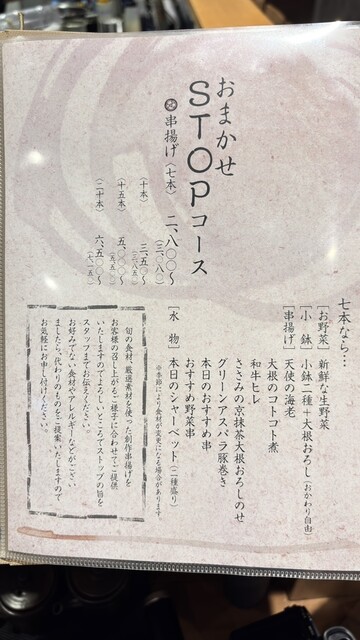 おまかせ
STOPコース
串揚げ〈七本〉 二、八〇〇〜
(三、〇八〇)
〈十本〉 三、五〇〇〜
(三、八五〇)
〈十五本〉 五、〇〇〇〜
(五、五〇〇)
〈二十本〉 六、五〇〇〜
(七、一五〇)
七本なら…
[お野菜] 新鮮な生野菜
[小 鉢] 小鉢二種+大根おろし(おかわり自由)
[串揚げ] 天使の海老
大根のコトコト煮
和牛ヒレ
ささみの京抹茶大根おろしのせ
グリーンアスパラ豚巻き
本日のおすすめ串
おすすめ野菜串
[水 物] 本日のシャーベット(二種盛り)
※季節により食材が変更になる場合があります。
旬の食材、厳選素材を使った創作串揚げを
お客様の召し上がるご様子に合わせてご提供
いたしますのでよろしいところでストップの旨を
スタッフまでお伝えください。
お好みでない食材やアレルギーなどがござい
ましたら、代わりのものをご提案いたしますので
お気軽にお申し付けください。